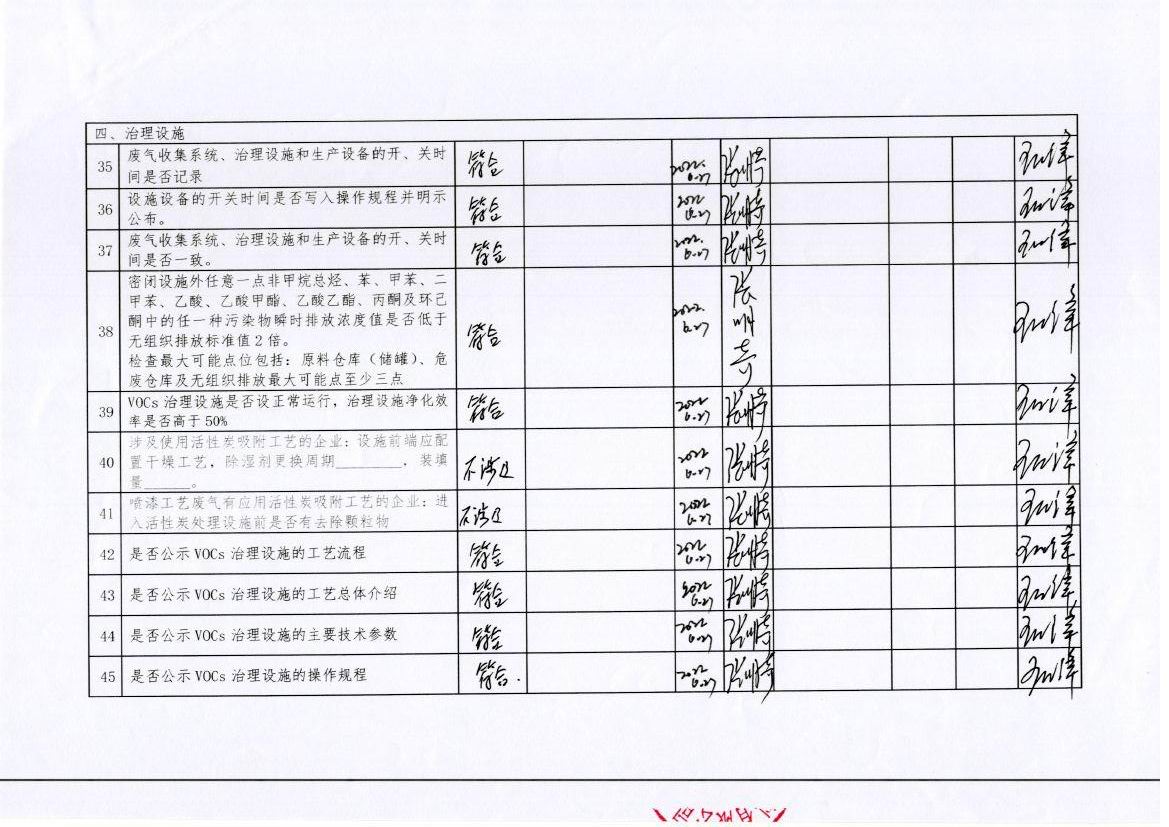 四、治理设施
35 废气收集系统、治理设施和生产设备的开、关时 符合 2022.
间是否记录 6.27
36 设施设备的开关时间是否写入操作规程并明示 符合 2022
公布。 6.27
37 废气收集系统、治理设施和生产设备的开、关时 符合 2022.
间是否一致。 6.27
密闭设施外任意一点非甲烷总烃、苯、甲苯、二
甲苯、乙酸、乙酸甲酯、乙酸乙酯、丙酮及环己
38 酮中的任一种污染物瞬时排放浓度值是否低于 符合 2022.
无组织排放标准值2倍。 6.27
检查最大可能点位包括：原料仓库（储罐）、危
废仓库及无组织排放最大可能点至少三点
39 VOCs 治理设施是否设正常运行，治理设施净化效 符合 2022
率是否高于50% 6.27
涉及使用活性炭吸附工艺的企业：设施前端应配
40 置干燥工艺，除湿剂更换周期________，装填 不涉及 2022
量_____。 6.27
41 喷漆工艺废气有应用活性炭吸附工艺的企业：进 不涉及 2022
入活性炭处理设施前是否有去除颗粒物 6.27
42 是否公示 VOCs 治理设施的工艺流程 符合 2022 6.27
43 是否公示 VOCs 治理设施的工艺总体介绍 符合 2022 6.27
44 是否公示 VOCs 治理设施的主要技术参数 符合 2022 6.27
45 是否公示 VOCs 治理设施的操作规程 符合. 2022 6.27